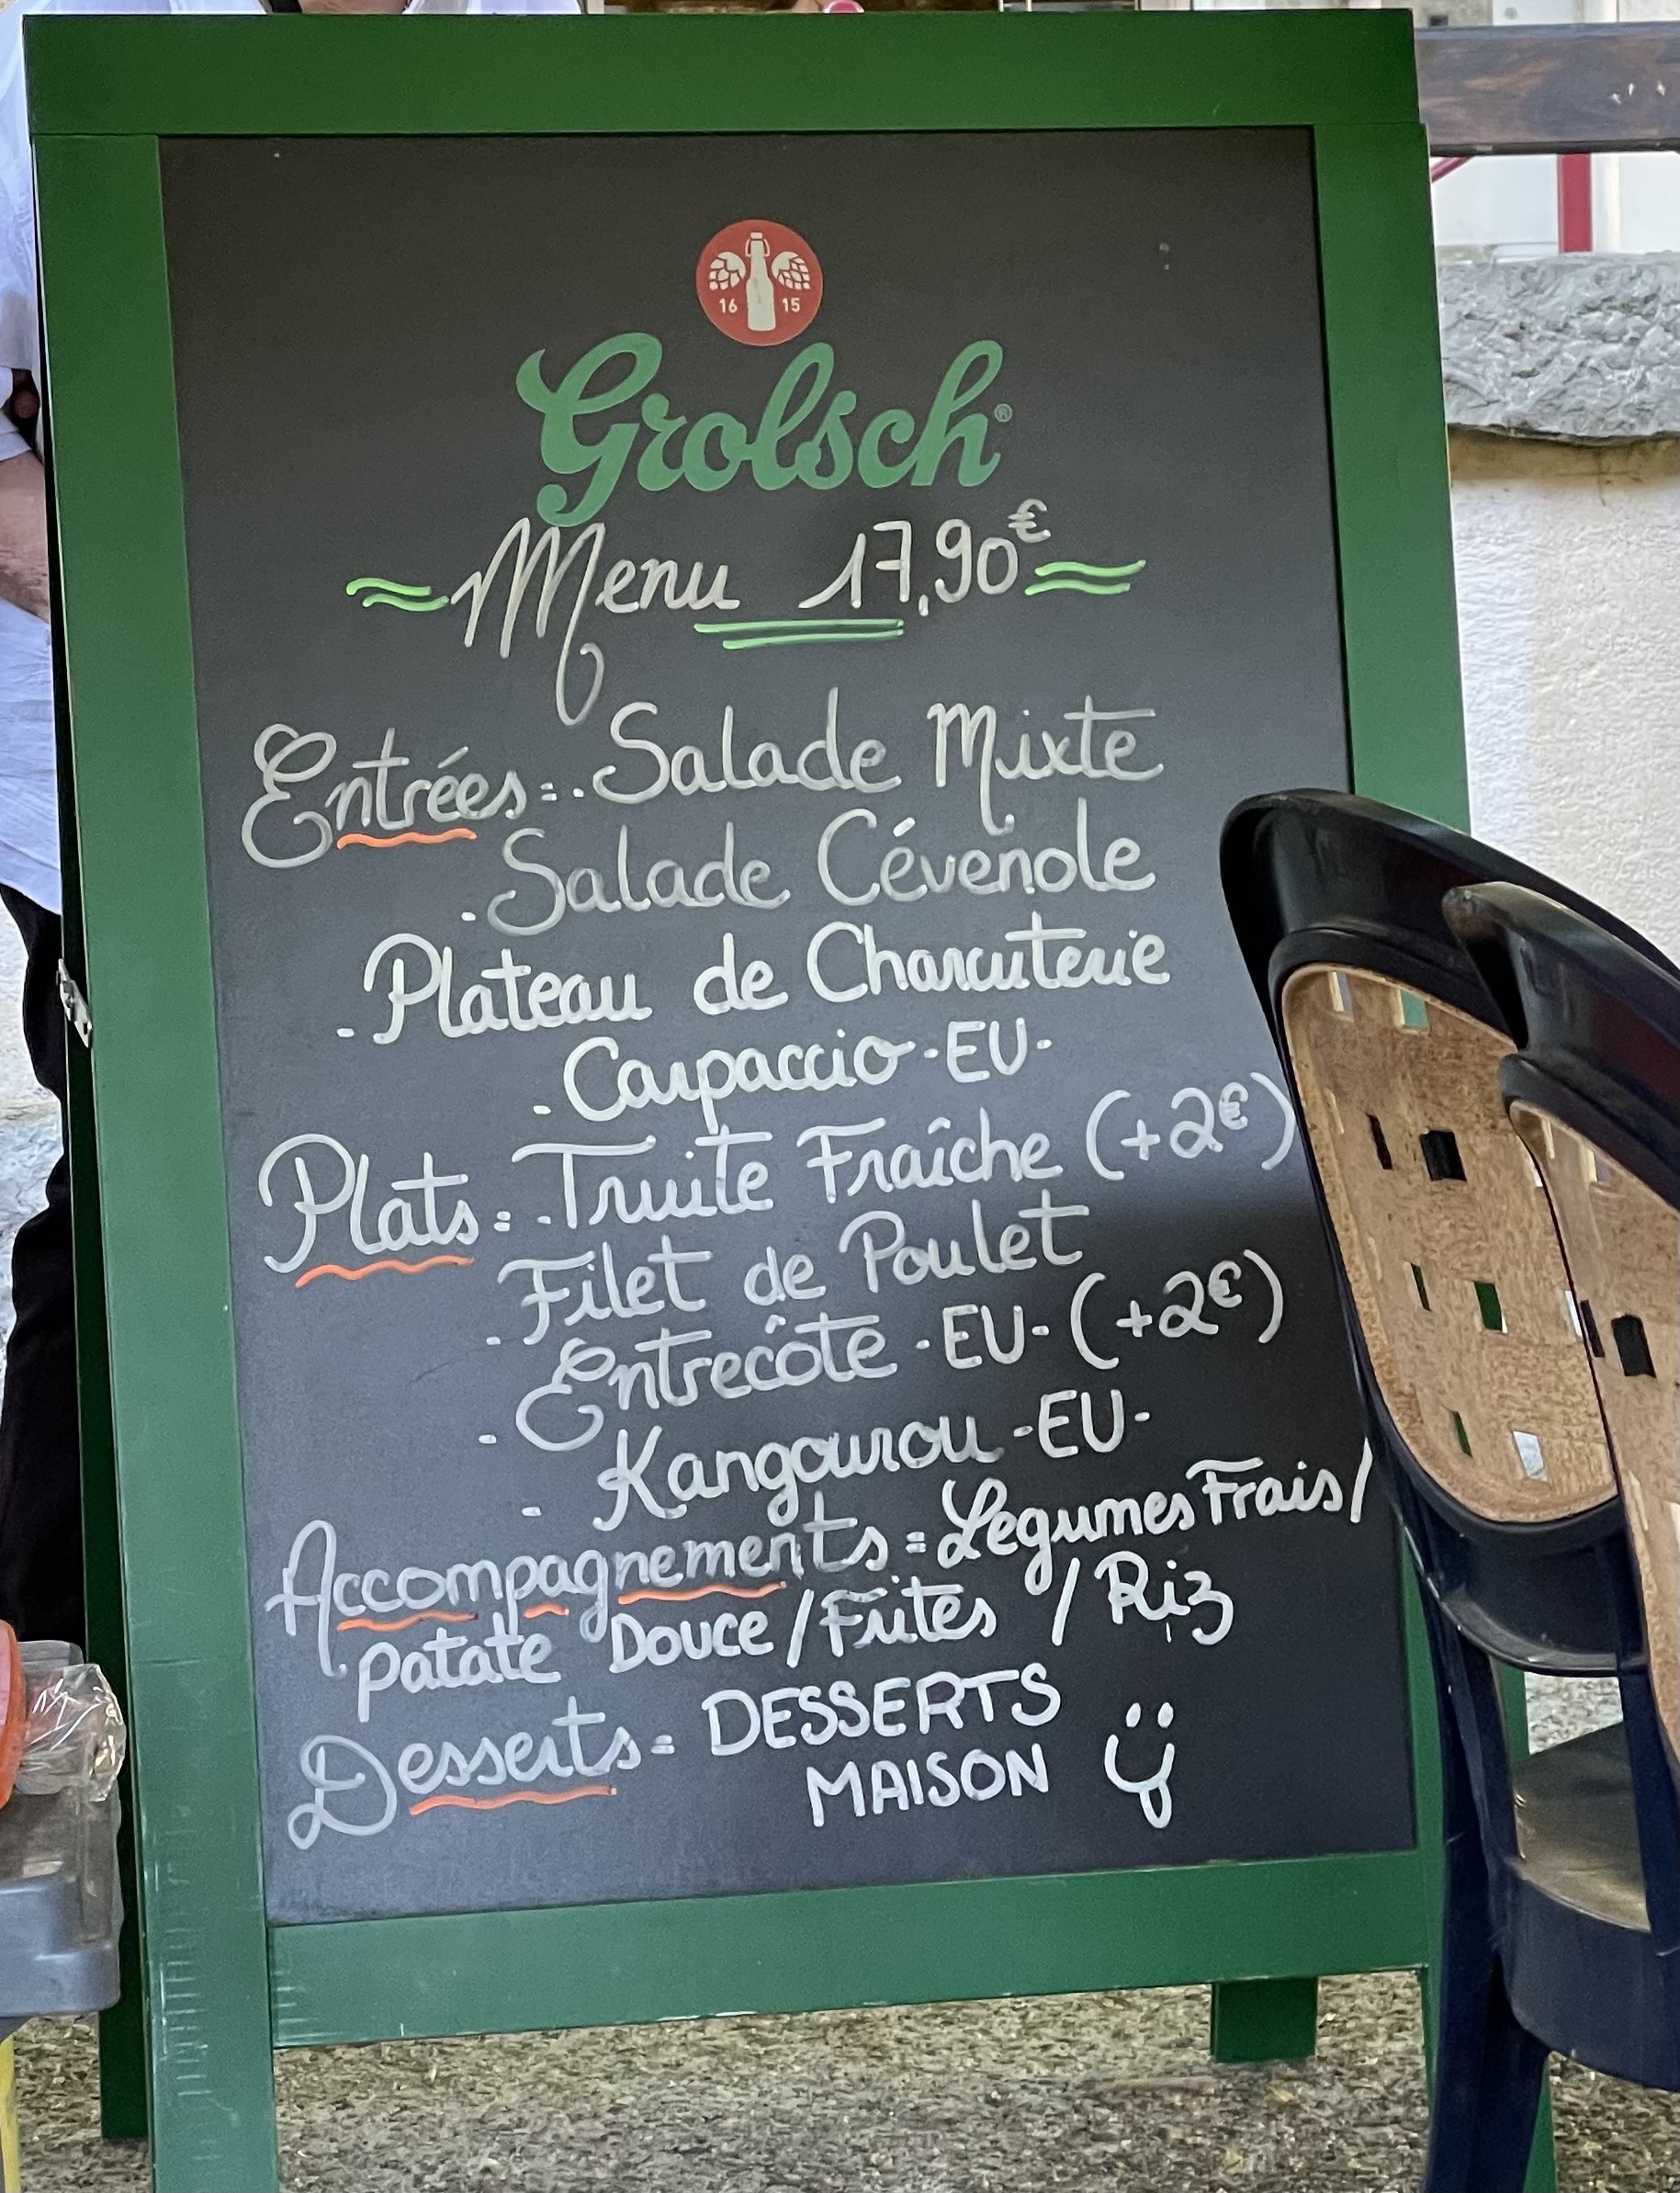 16 15
Grolsch®
Menu 17,90€
Entrées: . Salade Mixte
. Salade Cévenole
. Plateau de Charcuterie
. Carpaccio -EU-
Plats: . Truite Fraîche (+2€)
. Filet de Poulet
. Entrecôte -EU- (+2€)
. Kangourou -EU-
Accompagnements: Légumes Frais/
Patate Douce/Frites / Riz
Desserts: DESSERTS
MAISON